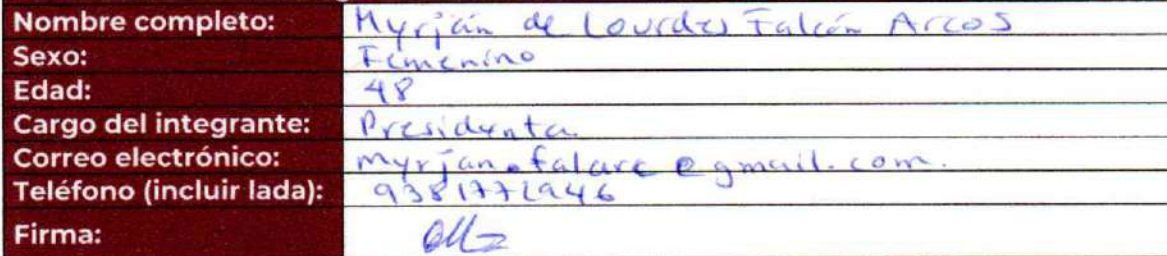 Nombre completo: Myrjan de Lourdes Falcón Arcos
Sexo: Femenino
Edad: 48
Cargo del integrante: Presidenta
Correo electrónico: myrjan.falarc@gmail.com.
Teléfono (incluir lada):
Firma: